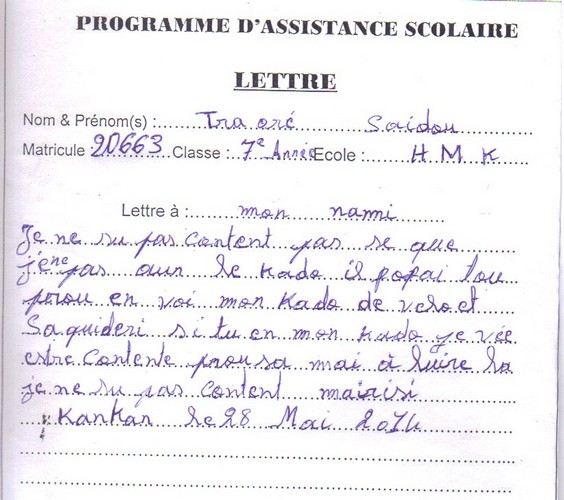 PROGRAMME D'ASSISTANCE SCOLAIRE
LETTRE
Nom & Prénom(s) : Traoré Saidou
Matricule 20663 Classe : 7e Année Ecole : H M K
Lettre à : mon nammi
Je ne su pas content pas se que
j'ène pas aun le kado il popai lou
prou en voi mon kado de velo et
Saquideri si tu en mon kado je vée
estre contente prou sa mai à luire la
je ne su pas content mairisi
Kankan le 28 Mai 2014